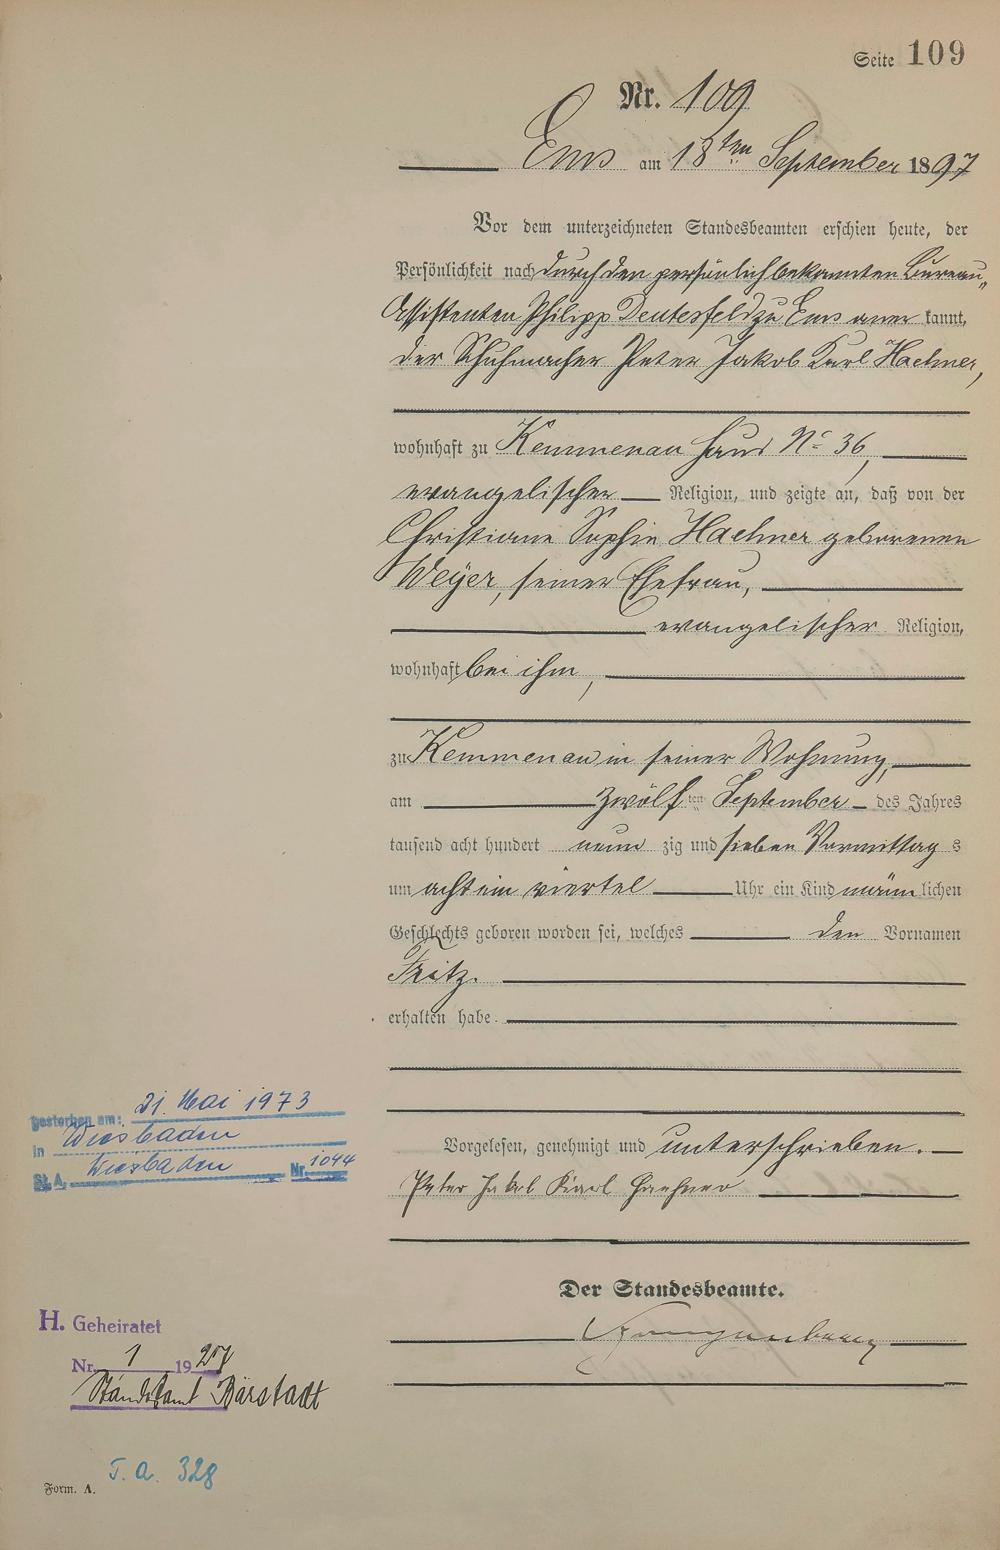 Seite 109
Nr. 109
Ems am 13ten September 1897
Vor dem unterzeichneten Standesbeamten erschien heute, der
Persönlichkeit nach durch den persönlich bekannten Bureau„
Assistenten Philipp Deutesfeld zu Ems aner kannt,
der Schuhmacher Peter Jakob Karl Haehner,
wohnhaft zu Kemmenau Haus No 36,
evangelischer Religion, und zeigte an, daß von der
Christiane Sophie Haehner geborenen
Weyer, seiner Ehefrau,
evangelischer Religion,
wohnhaft bei ihm,
zu Kemmenau in seiner Wohnung,
am zwölf ten September des Jahres
tausend acht hundert neun zig und sieben Vormittag s
um acht ein viertel Uhr ein Kind männ lichen
Geschlechts geboren worden sei, welches den Vornamen
Fritz.
erhalten habe.
Vorgelesen, genehmigt und unterschrieben.
Peter Jakob Karl Haehner
Der Standesbeamte.
gestorben am: 21. Mai 1973
in Wiesbaden
St. A. Wiesbaden Nr. 1044
H. Geheiratet
Nr. 1 1927
Standesamt Bärstadt
T. a. 328
Form. A.